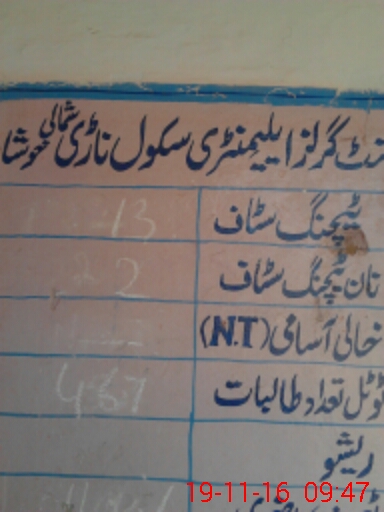 گرلز ایلیمنٹری سکول ناڑی شمالی
ٹیچنگ سٹاف 13
نان ٹیچنگ سٹاف 2
خالی آسامی (N.T)
ٹوٹل تعداد طالبات 467
ریشو
19-11-16 09:47